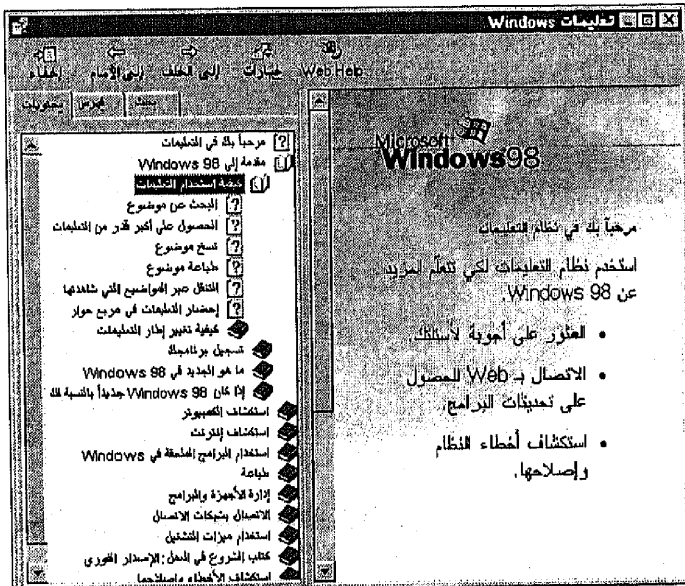 تعليمات Windows
إخفاء
إلى الأمام
إلى الخلف
خيارات
Web Help
محتويات
فهرس
بحث
مرحباً بك في التعليمات
مقدمة إلى Windows 98
كيفية استخدام التعليمات
البحث عن موضوع
الحصول على أكبر قدر من التعليمات
نسخ موضوع
طباعة موضوع
التنقل عبر المواضيع التي شاهدتها
إحضار التعليمات في مربع حوار
كيفية تغيير إطار التعليمات
تسجيل برنامجك
ما هو الجديد في Windows 98
إذا كان Windows 98 جديداً بالنسبة لك
استكشاف الكمبيوتر
استكشاف إنترنت
استخدام البرامج الملحقة في Windows
طباعة
إدارة الأجهزة والبرامج
الاتصال بشبكات الاتصال
استخدام ميزات التشغيل
كتاب الشروع في العمل: الإصدار الفوري
استكشاف الأخطاء وإصلاحها
Microsoft
Windows98
مرحباً بك في نظام التعليمات
استخدم نظام التعليمات لكي تتعلم المزيد
عن Windows 98.
• العثور على أجوبة لأسئلتك.
• الاتصال بـ Web للحصول
على تحديثات البرامج.
• استكشاف أخطاء النظام
وإصلاحها.